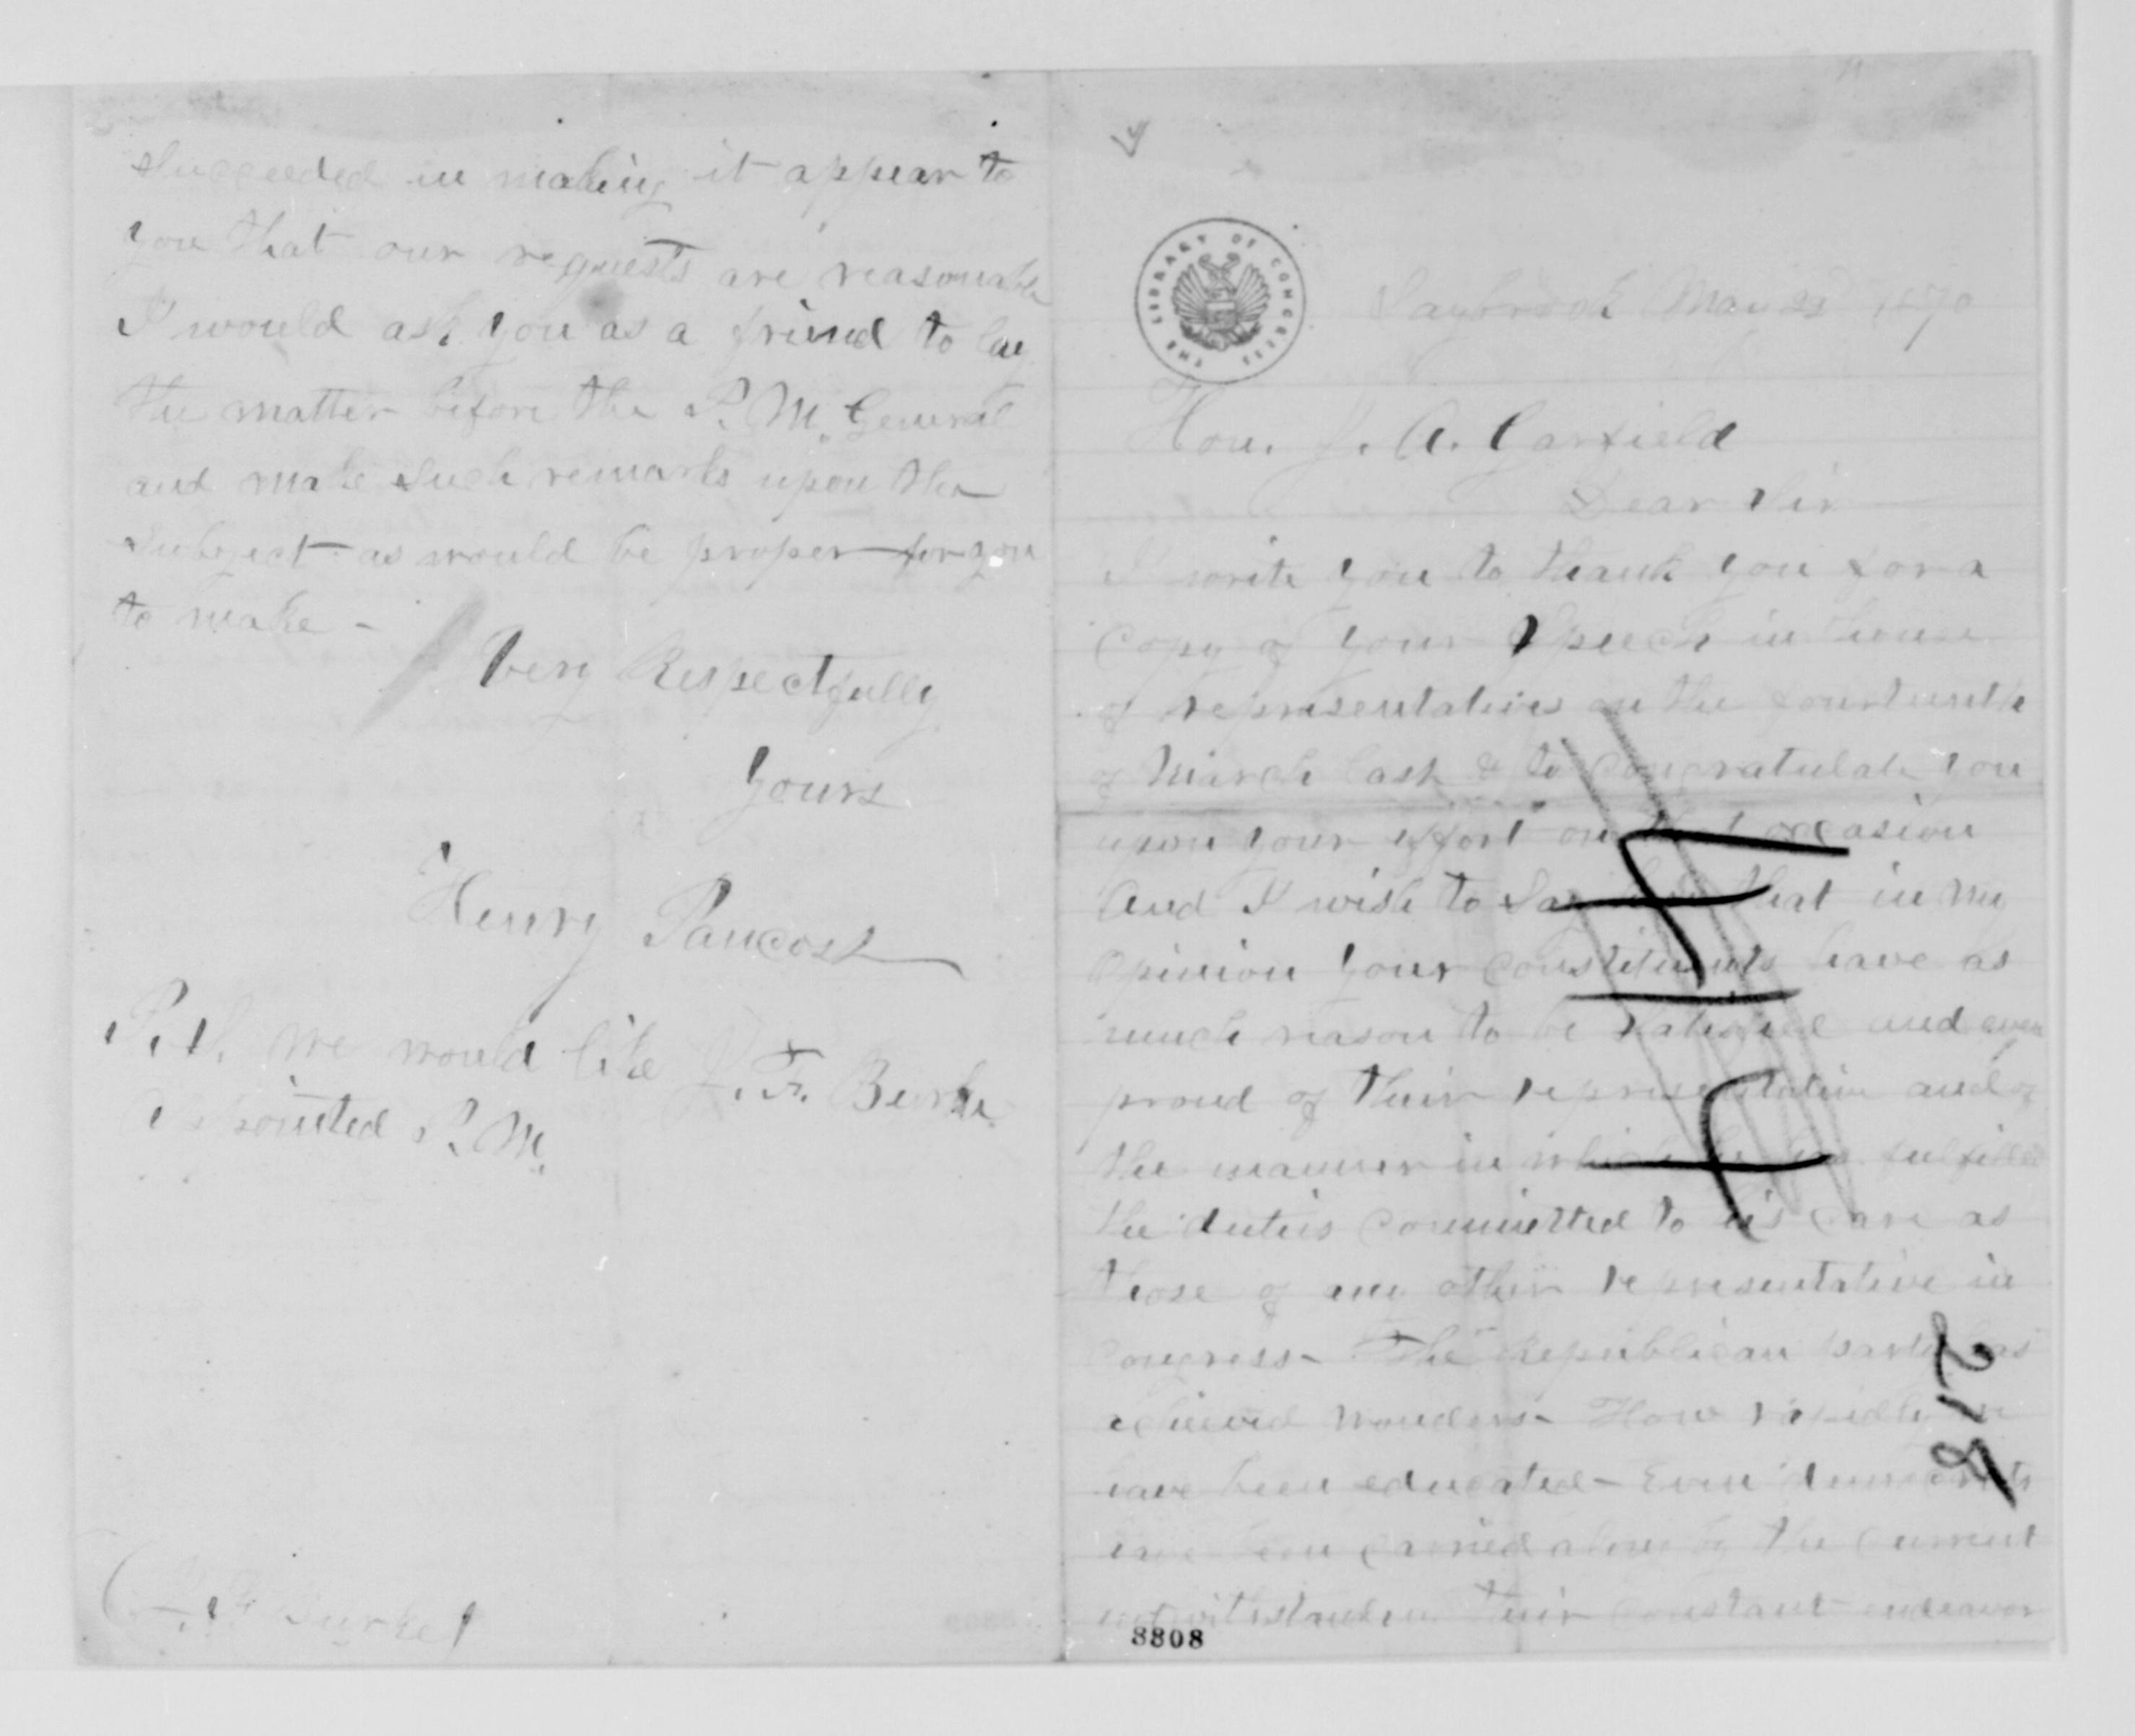 succeeded in making it appear to
you that our requests are reasonable
I would ask you as a friend to lay
the matter before the P. M. General
and make such remarks upon the
subject as would be proper for you
to make -
Very Respectfully
Yours
Henry Pancost
P.S. We would like J. F. Burke
appointed P. M.
THE LIBRARY OF CONGRESS
Saybrook May 1870
Hon. J. A. Garfield
Dear Sir
I write you to thank you for a
Copy of your Speech in house
of representatives on the fourteenth
of March last & to congratulate you
upon your effort on that occasion
And I wish to say that in my
opinion your constituents have as
much reason to be satisfied and even
proud of their representative and of
the manner in which he has fulfilled
the duties committed to his care as
those of any other representative in
Congress - The Republican party has
achieved wonders - How rapidly we
have been educated - Even democrats
have been carried along by the current
notwithstanding their constant endeavor
218
3808